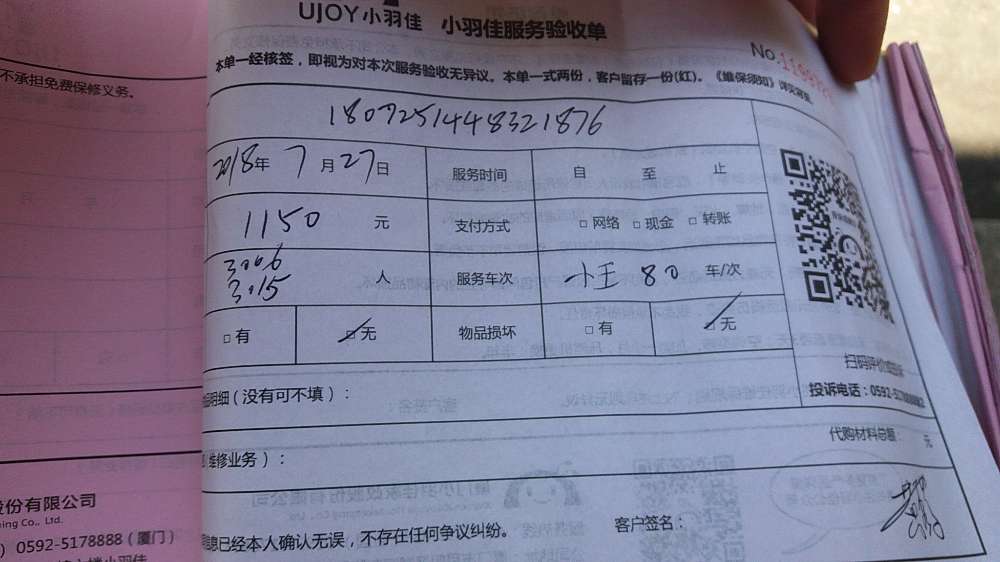 UJOY小羽佳 小羽佳服务验收单
No.
不承担免费保修义务。
本单一经核签，即视为对本次服务验收无异议。本单一式两份，客户留存一份(红)。《维保须知》详见背面。
1807251448321876
2018年 7月27日 服务时间 自 至 止
1150 元 支付方式 □网络 □现金 □转账
3006
3015 人 服务车次 小王 80 车/次
□有 □无 物品损坏 □有 □无
明细(没有可不填)：
扫码评价
投诉电话：0592-
代购材料总额： 元
维修业务)：
份有限公司
ing Co., Ltd.
) 0592-5178888(厦门)
小羽佳
已经本人确认无误，不存在任何争议纠纷。 客户签名：